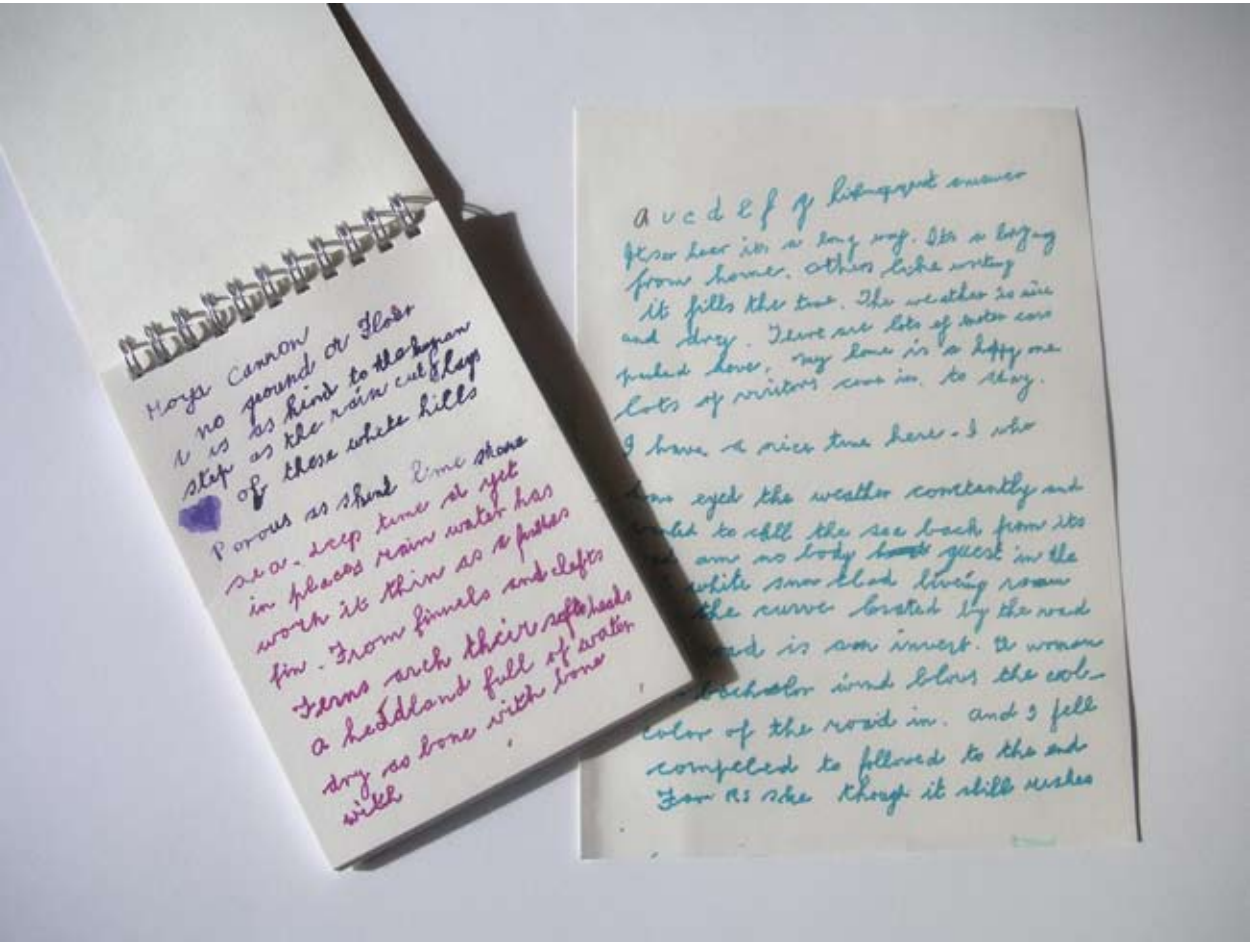 Moya Cannon
no ground or Floor
is as kind to the human
step as the rain cut flags
of these white hills
Porous as skeul lime stone
sea. deep time st yet
in places rain water has
worn it thin as a
fin. From finnels and clefts
Ferns arch their soft heads
a headland full of water
dry as bone with bone
with
a u c d e f g
its a long way. Its a long way
from home. others like writing
it fills the time. The weather is nice
and dry. There are lots of motor cars
parked here. my home is a happy one
lots of visitors come in. to stay.
I have a nice time here. I
eyed the weather constantly and
to call the sea back from its
am no body guest in the
white snow clad living room
the curve located by the road
road is an invert. A woman
bachelor wind blows the col-
color of the road in. and I fell
compeled to followed to the end
she though it still wishes